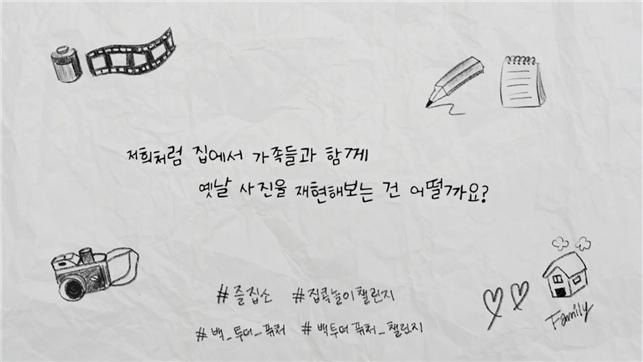 저희처럼 집에서 가족들과 함께
옛날 사진을 재현해보는 건 어떨까요?
#즐집소 #집콕놀이챌린지
#백_투더_퓨쳐 #백투더퓨쳐_챌린지
Family